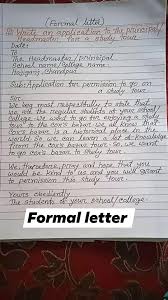 (Formal letter)
Write an application to the principal/
headmaster for a study tour.
Date:
To
The Headmaster/principal
School name/College name
Hajiganj, Chandpur
Sub: Application for permission to go on
a study tour.
We beg most respectfully to state that
we are the regular students of your school/
college. We want to go for enjoying a study
tour to the cox's bazar. We all know that
cox's bazar is a historical place in the
world. So we can learn a lot of knowledge
from the cox's bazar tour. So, we want to
go cox's bazar to study tour.
We, therefore, pray and hope that you
would be kind to us and you will grant
to permission this study tour.
Yours obediently
The students of your school/college.
Formal letter